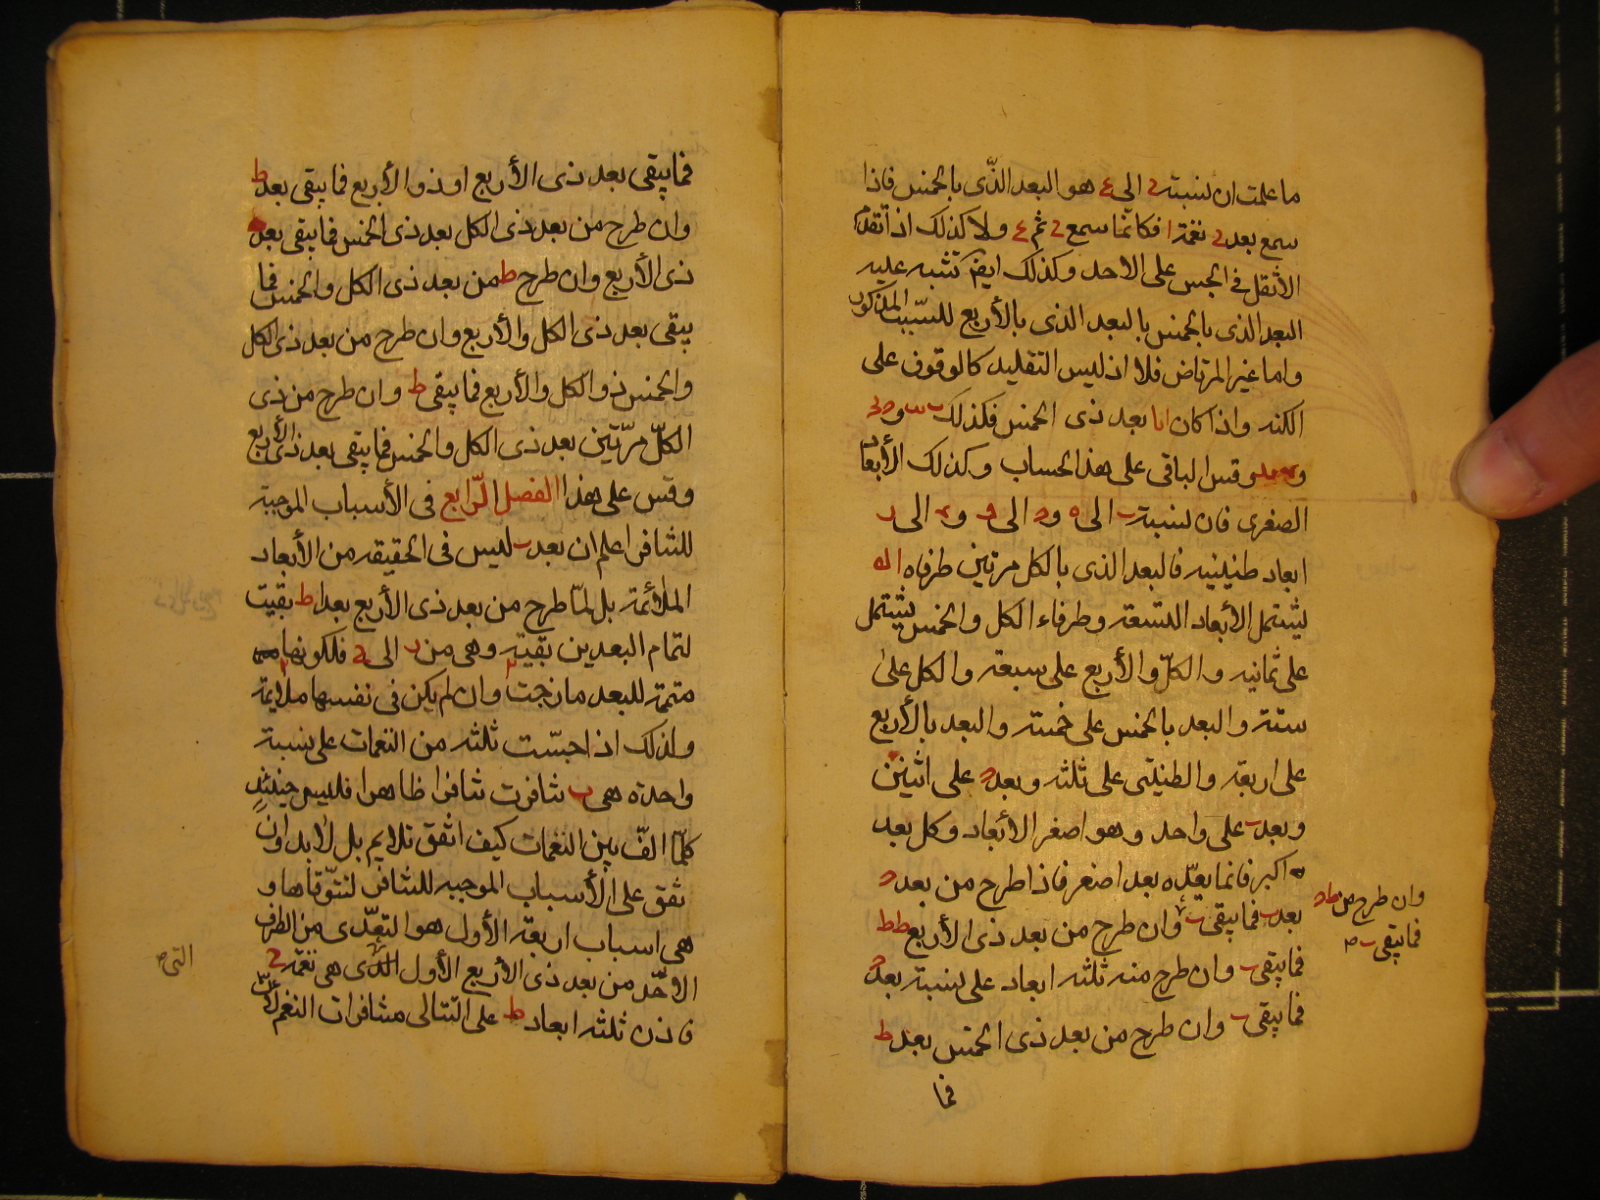 ما علمت ان نسبته ح الى ع هو البعد الذّى بالخمس فاذا
سمع بعد نغمة ا فكانّما سمع ح ثم ع ولا كذلك اذ اتقدم
الأثقل فى الجس على الاحد وكذلك ايضً تشبه عليه
البعد الذى بالخمس بالبعد الذى بالأربع للسّبب المذكور
واما غير المرتاض فلا اذ ليس التقليد كالوقوف على
الكنه واذا كان بعد ذى الخمس فكذلك
وقس الباقى على هذا الحساب وكذلك الأبعاد
الصغرى فان نسبة ب الى ه و الى و الى
ابعاد طنينيه فالبعد الذى بالكل مرتين طرفاه ا له
يشتمل الأبعاد التسعة وطرفاء الكل والخمس يشتمل
على ثمانيه والكلّ والأربع على سبعة والكل على
ستة والبعد بالخمس على خمسة والبعد بالأربع
على اربعة والطنينى على ثلثه وبعد ج على اثنين
وبعد ب على واحد وهو اصغر الأبعاد وكل بعد
اكبر فانما يعدّه بعد اصغر فاذا طرح من بعد ج
بعد ب فما يبقى ب وان طرح من بعد ذى الأربع ط ط
فما يبقى ب وان طرح منه ثلثه ابعاد على نسبة بعد ج
فما يبقى ب وان طرح من بعد ذى الخمس بعد ط
فما
وان طرح من ط ج
فما يبقى ب صح
فما يبقى بعد ذى الأربع او ذو الأربع فما يبقى بعد ط
وان طرح من بعد ذى الكل بعد ذى الخمس فما يبقى بعد
ذى الأربع وان طرح ط من بعد ذى الكل والخمس فما
يبقى بعد ذى الكل والأربع وان طرح من بعد ذى الكل
والخمس ذو الكل والأربع فما يبقى ط وان طرح من ذى
الكلّ مرّتين بعد ذى الكل والخمس فما يبقى بعد ذى الأربع
وقس على هذا الفصل الرّابع فى الأسباب الموجبة
للتنافر اعلم ان بعد ب ليس فى الحقيقه من الأبعاد
الملائمة بل لمّا طرح من بعد ذى الأربع بعدا ط بقيت
لتمام البعدين بقيته وهى من ر الى ح فلكونها
متممة للبعد مازجت وان لم يكن فى نفسها ملايمة
ولذلك اذا جسّت ثلثه من النغمات على نسبة
واحدة هى ب تنافرت تنافرا ظاهرا فليس حينئذٍ
كلّما الفّ بين النغمات كيف اتفق تلايم بل لابد وان
نقف على الأسباب الموجبه للتنافر لنتوّقاها و
هى اسباب اربعة الأول هو التعدّى من الطرف
الاحّد من بعد ذى الأربع الأول الذى هى نغمة ح
فاذن ثلثه ابعاد ط على التتالى متنافرات النغم لأنّ
التى صح